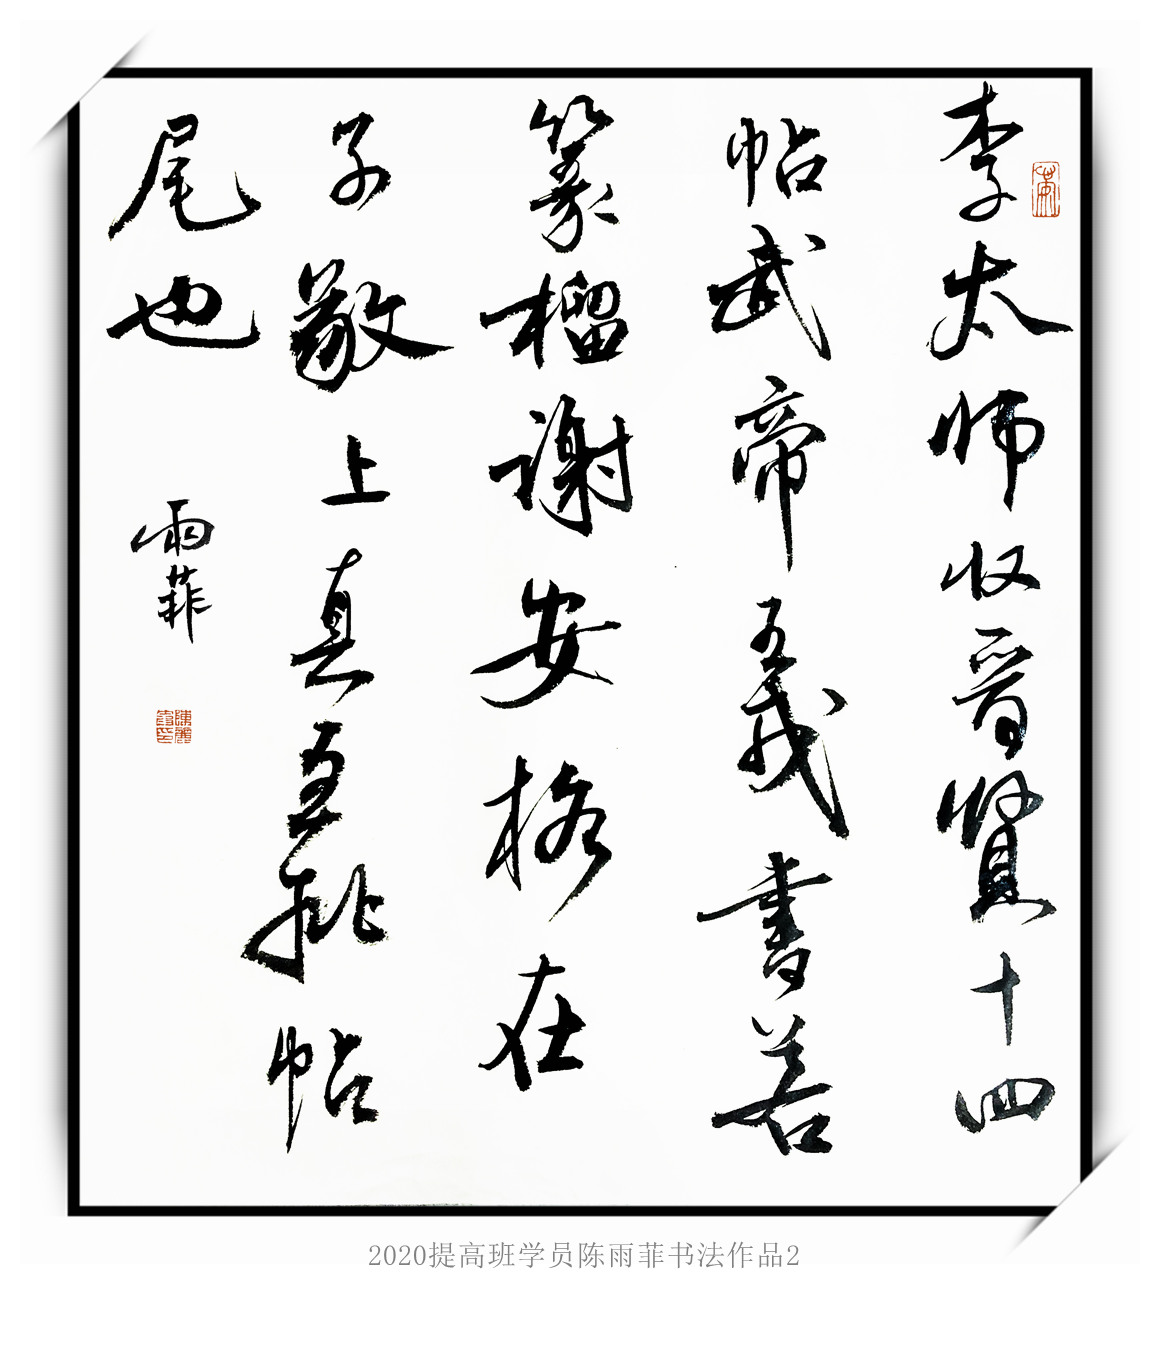 李太师收晋賢十四
帖武帝王戎書若
篆榴謝安格在
子敬上真宜批帖
尾也
雨菲
2020提高班学员陈雨菲书法作品2